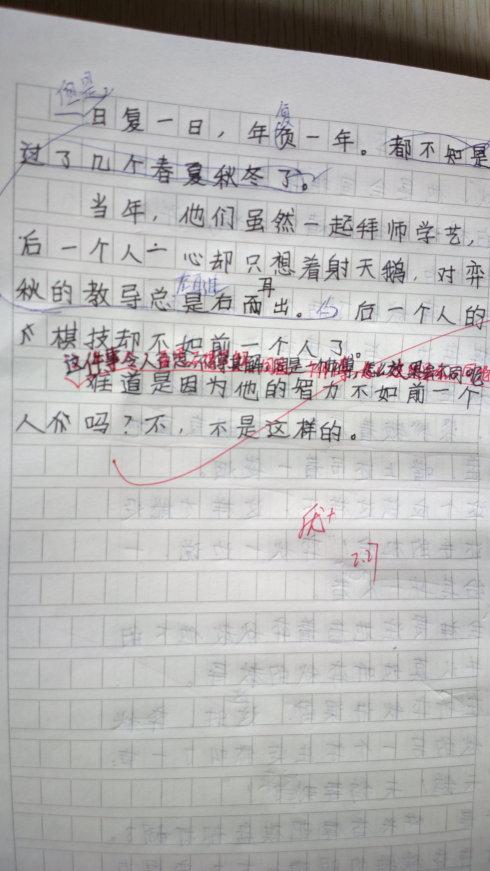 但是,
复
一日复一日，年负一年。都不知是
过了几个春夏秋冬了。
当年，他们虽然一起拜师学艺，
后一个人一心却只想着射天鹅，对弈
左耳进 耳
秋的教导总是右而出。后一个人的
棋技却不如前一个人了。
这件事令人百思不得其解 同是一个师傅，怎么效果会不同呢
难道是因为他的智力不如前一个
人吗？不，不是这样的。
优+
2.27